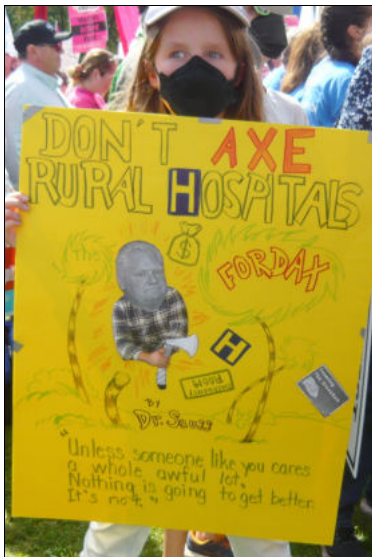 DON'T AXE
RURAL HOSPITALS
$
The
FORDAX
H
BY
Dr. Seuss
"Unless someone like you cares
a whole awful lot,
Nothing is going to get better.
It's not."